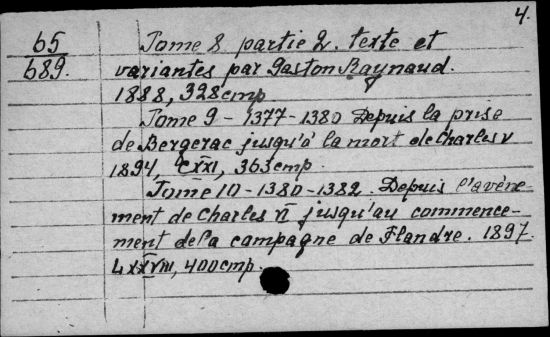 4.
65
689.
Tome 8 partie 2. texte et
variantes par Gaston Raynaud.
1888, 328 cmp
Tome 9 - 1377-1380 Depuis la prise
de Bergerac jusqu'à la mort de Charles V
1894, CXXI, 363 cmp.
Tome 10 - 1380-1382. Depuis l'avène-
ment de Charles VI jusqu'au commence-
ment de la campagne de Flandre. 1897.
LXXVIII, 400 cmp.